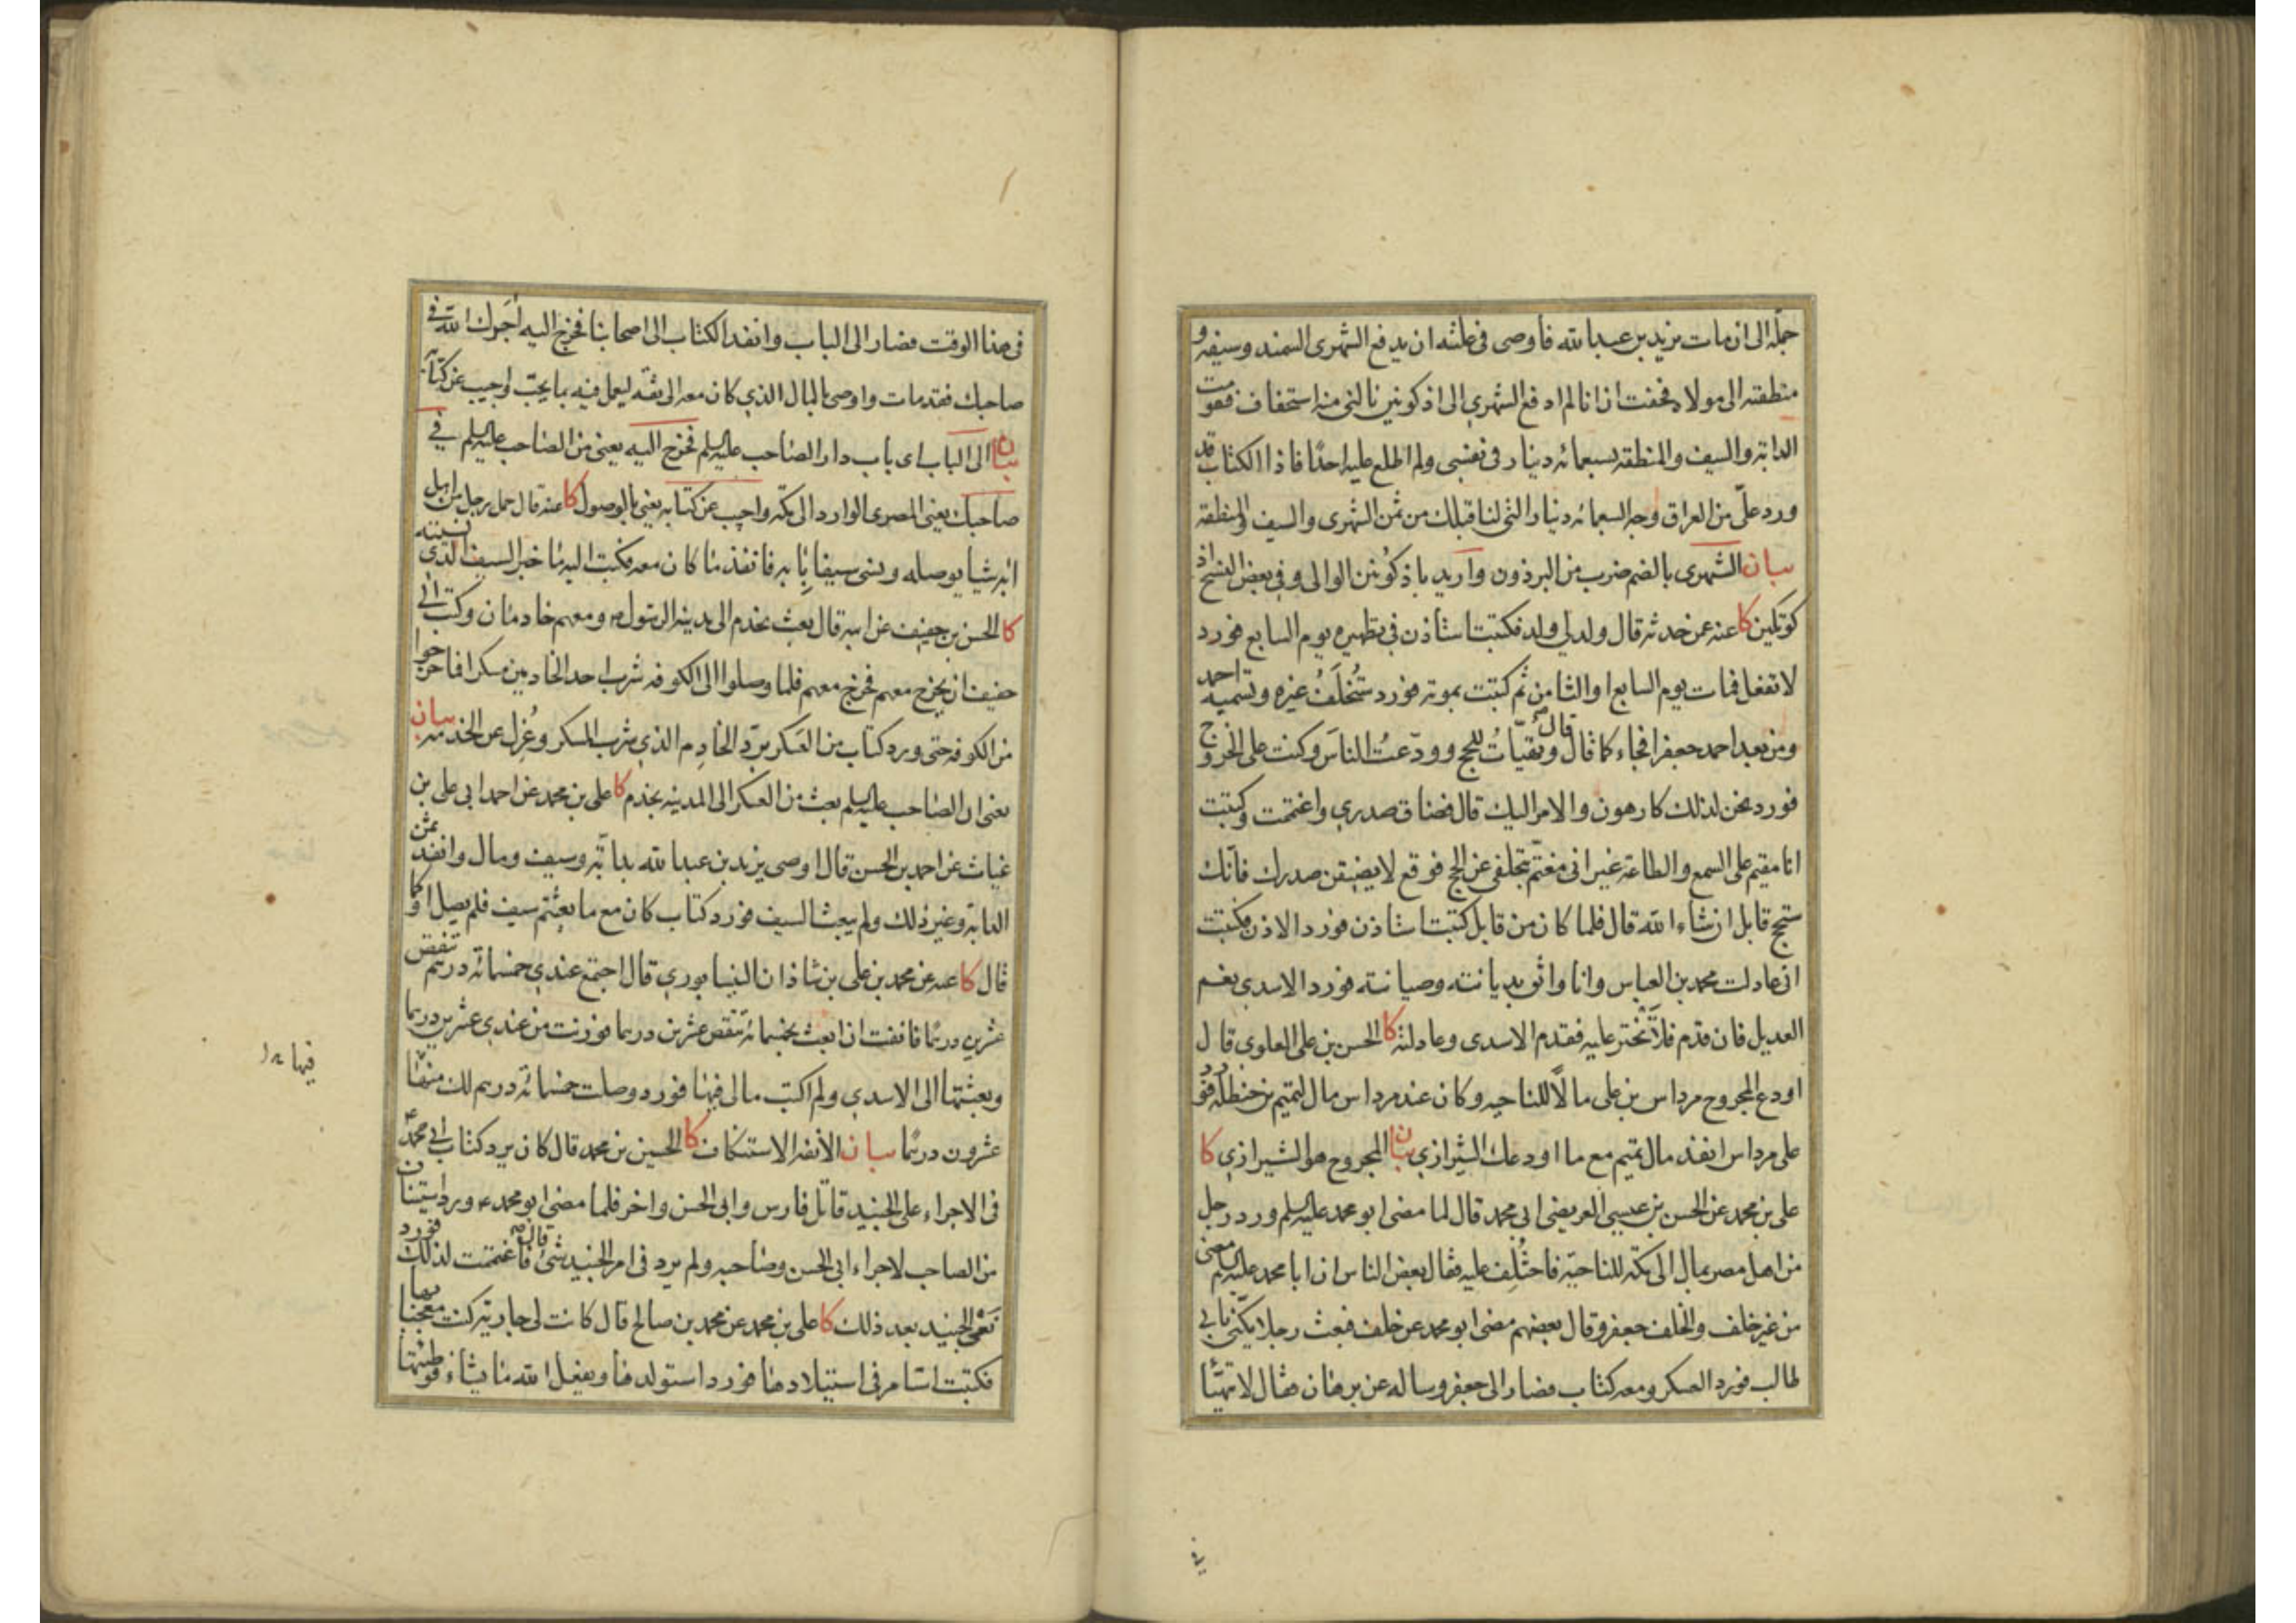 جملة الى ان مات يزيد بن عبد الله فاوصى فى علته ان يدفع الشهرى السمند وسيفه و
منطقته الى مولاه فخفت ان انا لم ادفع الشهرى الى اذكوتين نالنى منه استخفاف فقومت
الدابة والسيف والمنطقة بسبعمائة دينار فى نفسى ولم اطلع عليه احدا فاذا الكتاب قد
ورد علىّ من العراق وجه السبعمائة دينار التى لنا قبلك من ثمن الشهرى والسيف والمنطقة
بيان الشهرى بالضم ضرب من البرذون واريد باذكوتين الوالى وفى بعض النسخ اذ
كوتكين كا عنه عمن حدثه قال ولد لى ولد فكتبت استاذن فى تطهيره يوم السابع فورد
لا تفعل فمات يوم السابع او الثامن ثم كتبت بموته فورد ستُخلَفُ غيره وتسميه احمد
ومن بعد احمد جعفرا فجاء كما قال قال وتهيّاتُ للحج وودّعتُ الناسَ وكنت على الخروج
فورد نحن لذلك كارهون والامر اليك قال فضاق صدرى واغتممت وكتبت
انا مقيم على السمع والطاعة غير انى مغتمّ بتخلفى عن الحج فوقع لا يضيقن صدرك فانّك
ستحج قابل ان شاء الله قال فلما كان من قابل كتبت استاذن فورد الاذن فكتبت
انى عادلت محمد بن العباس وانا واثق بديانته وصيانته فورد الاسدى نعم
العديل فان قدم فلا تختر عليه فقدم الاسدى وعادلته كا الحسن بن على العلوى قال
اودع المجروح مرداس بن على مالًا للناحيه وكان عند مرداس مال لتميم بن حنظلة فورد
على مرداس انفذ مال تميم مع ما اودعك الشيرازي بيان المجروح هو الشيرازي كا
على بن محمد عن الحسن بن عيسى العريضى ابى محمد قال لما مضى ابو محمد عليه السلم ورد رجل
من اهل مصر بمال الى مكة للناحية فاختُلِف عليه فقال بعض الناس ان ابا محمد عليه السلم مضى
من غير خلف والخلف جعفر وقال بعضهم مضى ابو محمد عن خلف فبعث رجلا يكنى بابي
طالب فورد العسكر ومعه كتاب فصار الى جعفر وساله عن برهان فقال لا تتهيّأ
فى هذا الوقت فصار الى الباب وانفذ الكتاب الى اصحابنا فخرج اليه آجرك الله فى
صاحبك فقد مات واوصى بالمال الذي كان معه الى ثقة ليعمل فيه بما يحبّ واجيب عن كتابه
بيان الى الباب اى باب دار الصاحب عليه السلم فخرج اليه يعنى من الصاحب عليه السلم فى
صاحبك يعنى المصرى الوارد الى مكة واجيب عن كتابه يعنى بالوصول كا عنه قال حمل رجل من اهل
ابه شيا يوصله ونسى سيفا بآبه فانفذ ما كان معه فكتب اليه ما خبر السيف الذى نسيته
كا الحسن بن خفيف عن ابيه قال بعث بخدم الى مدينة الرسول ص ومعهم خادمان وكتب الى
خفيف ان يخرج معهم فخرج معهم فلما وصلوا الى الكوفه شرب احد الخادمين مسكرا فما خرجوا
من الكوفه حتى ورد كتاب من العسكر بردّ الخادِم الذي شرب المسكر وعُزِل عن الخدمة بيان
يعنى ان الصاحب عليه السلم بعث من العسكر الى المدينه بخدم كا على بن محمد عن احمد ابى على بن
غياث عن احمد بن الحسن قال اوصى يزيد بن عبد الله بدابّة وسيف ومال وانفذ ثمن
الدابة وغير ذلك ولم يبعث السيف فورد كتاب كان مع ما بعثتم سيف فلم يصل او كما
قال كا عنه عن محمد بن على بن شاذان النيسابوري قال اجتمع عندي خمسمائة درهم تنقص
عشرين درهما فانفت ان ابعث بخمسمائة تنقص عشرين درهما فوزنت من عندى عشرين درهما
وبعثتها الى الاسدي ولم اكتب مالى فيها فورد وصلت خمسمائة درهم لك منها
عشرون درهما بيان الأنفة الاستنكاف كا الحسين بن محمد قال كان يرد كتاب ابى محمد ع
فى الاجراء على الجنيد قاتل فارس وابى الحسن واخر فلما مضى ابو محمد ع ورد استيناف
من الصاحب لاجراء ابى الحسن وصاحبه ولم يرد فى امر الجنيد شئ قال فاغتممت لذلك فورد
نَعْىُ الجنيد بعد ذلك كا على بن محمد عن محمد بن صالح قال كانت لى جارية كنت معجبا بها
فكتبت استامر فى استيلادها فورد استولدها ويفعل الله ما يشاء فوطئتها
فيها